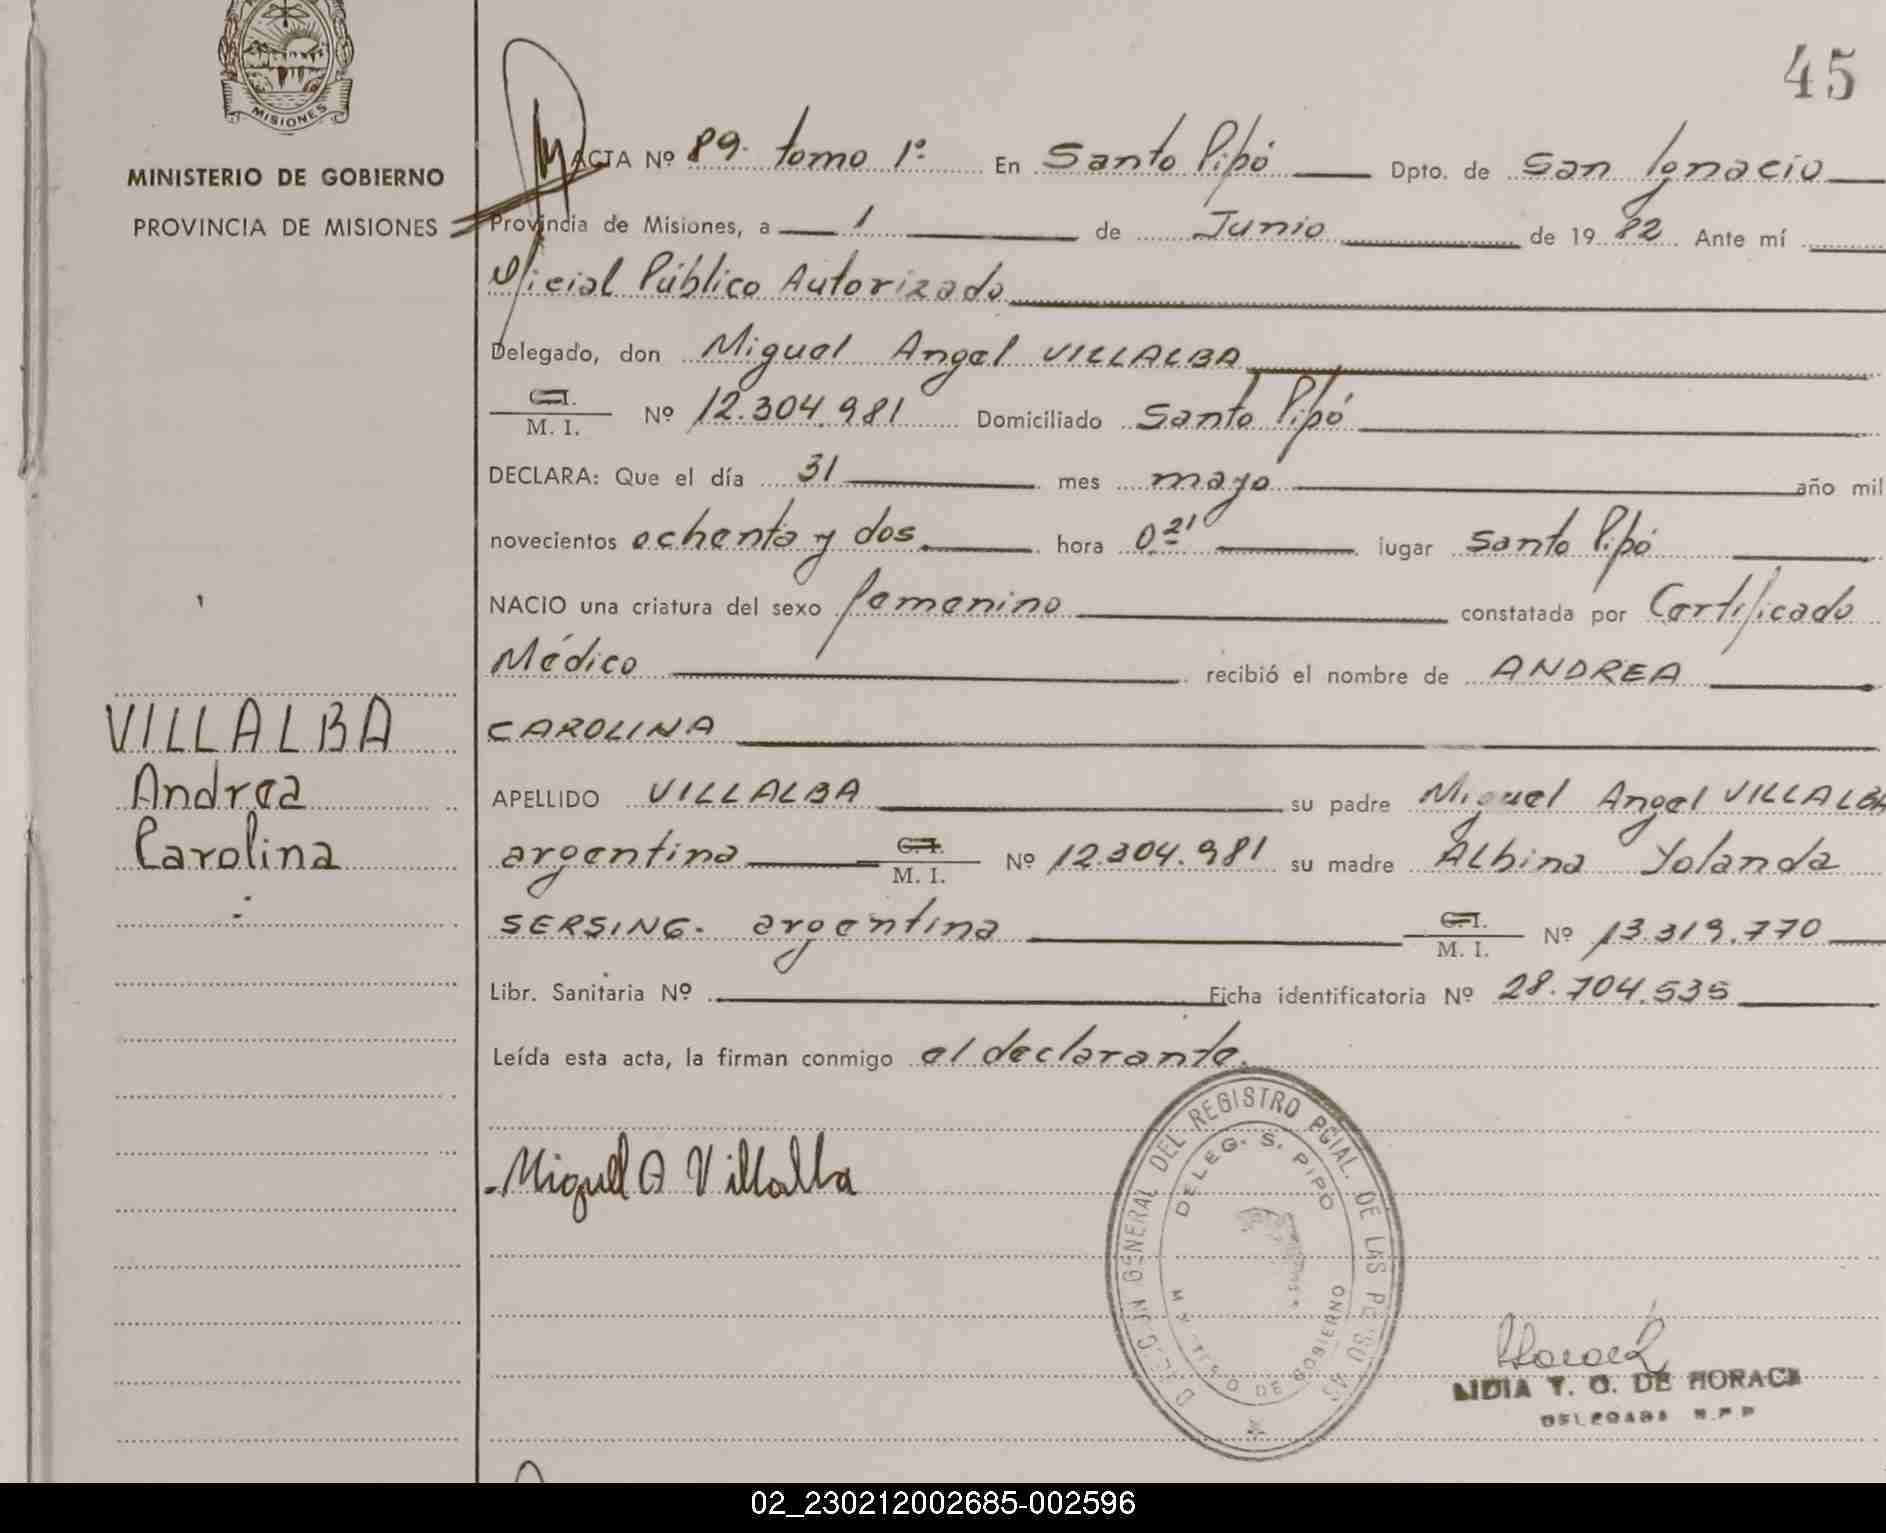 45
MISIONES
MINISTERIO DE GOBIERNO
PROVINCIA DE MISIONES
VILLALBA
Andrea
Carolina
ACTA Nº 89. tomo 1º En Santo Pipó Dpto. de San Ignacio
Provincia de Misiones, a 1 de Junio de 19 82 Ante mí
Oficial Público Autorizado
Delegado, don Miguel Angel VILLALBA
C.I. / M. I. Nº 12.304.981 Domiciliado Santo Pipó
DECLARA: Que el día 31 mes mayo año mil
novecientos ochenta y dos hora 0.21' lugar Santo Pipó
NACIO una criatura del sexo femenino constatada por Certificado
Médico recibió el nombre de ANDREA
CAROLINA
APELLIDO VILLALBA su padre Miguel Angel VILLALBA
argentina C.I. / M. I. Nº 12.304.981 su madre Albina Yolanda
SERSING. argentina C.I. / M. I. Nº 13.319.770
Libr. Sanitaria Nº Ficha identificatoria Nº 28.704.535
Leída esta acta, la firman conmigo el declarante.
Miguel A Villalba
GENERAL DEL REGISTRO PCIAL. DE LAS
DELEG. S. PIPÓ
DE GOBIERNO
LIDIA T. O. DE HORACK
DELEGADA R.P.P
02_230212002685-002596